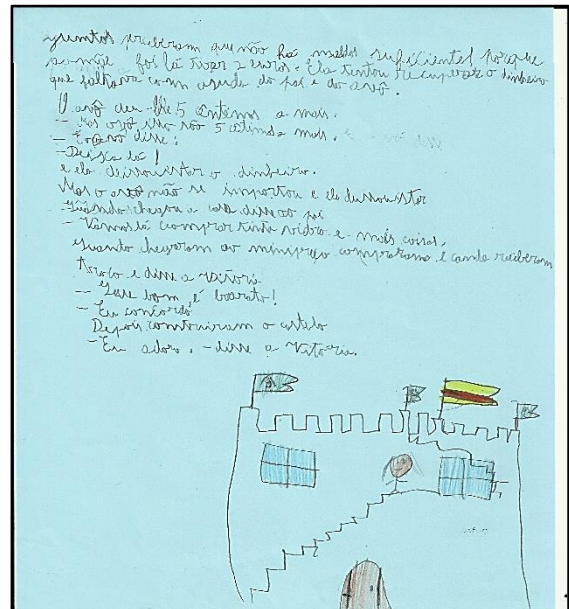 juntos reuberam que não há moedas suficientes porque
a mãe foi lá trazer 2 euros. Ela tentou recuperar o dinheiro
que faltava com ajuda do pai e do avô.
O avô deu-lhe 5 a mais.
- Mas isto são 5 a mais.
- E o avô disse:
- Deixa lá!
e ela o dinheiro.
Mas o avô não se importou e ela
- Quando chegou a casa disse ao pai
- Vamos lá comprar tinta vidro e mais coisas.
quanto chegaram ao minipreço compraram e
troco e disse a Vitória
- Que bom, é boarato!
- Eu concordo
Depois construiram o castelo
- Eu adoro. - disse a Vitória.